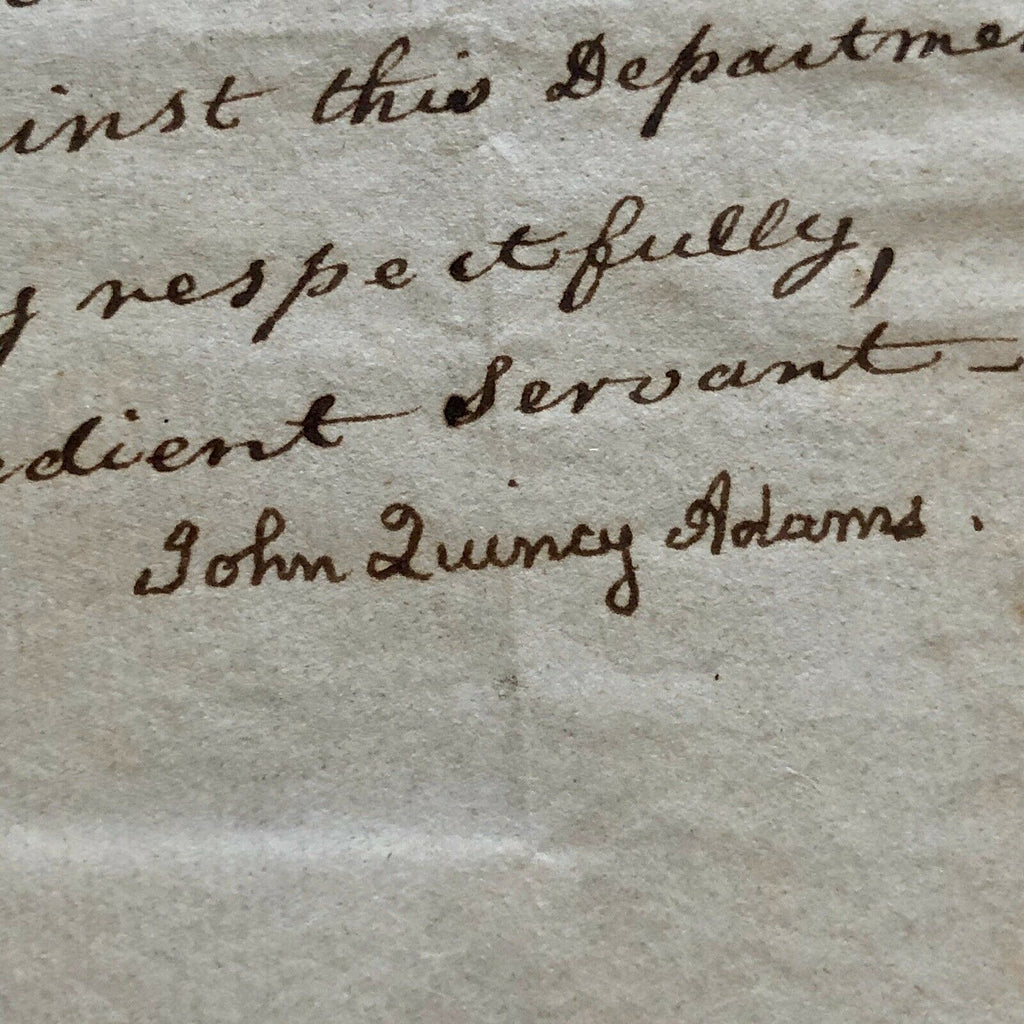 inst this Departme
y respectfully,
edient Servant -
John Quincy Adams .